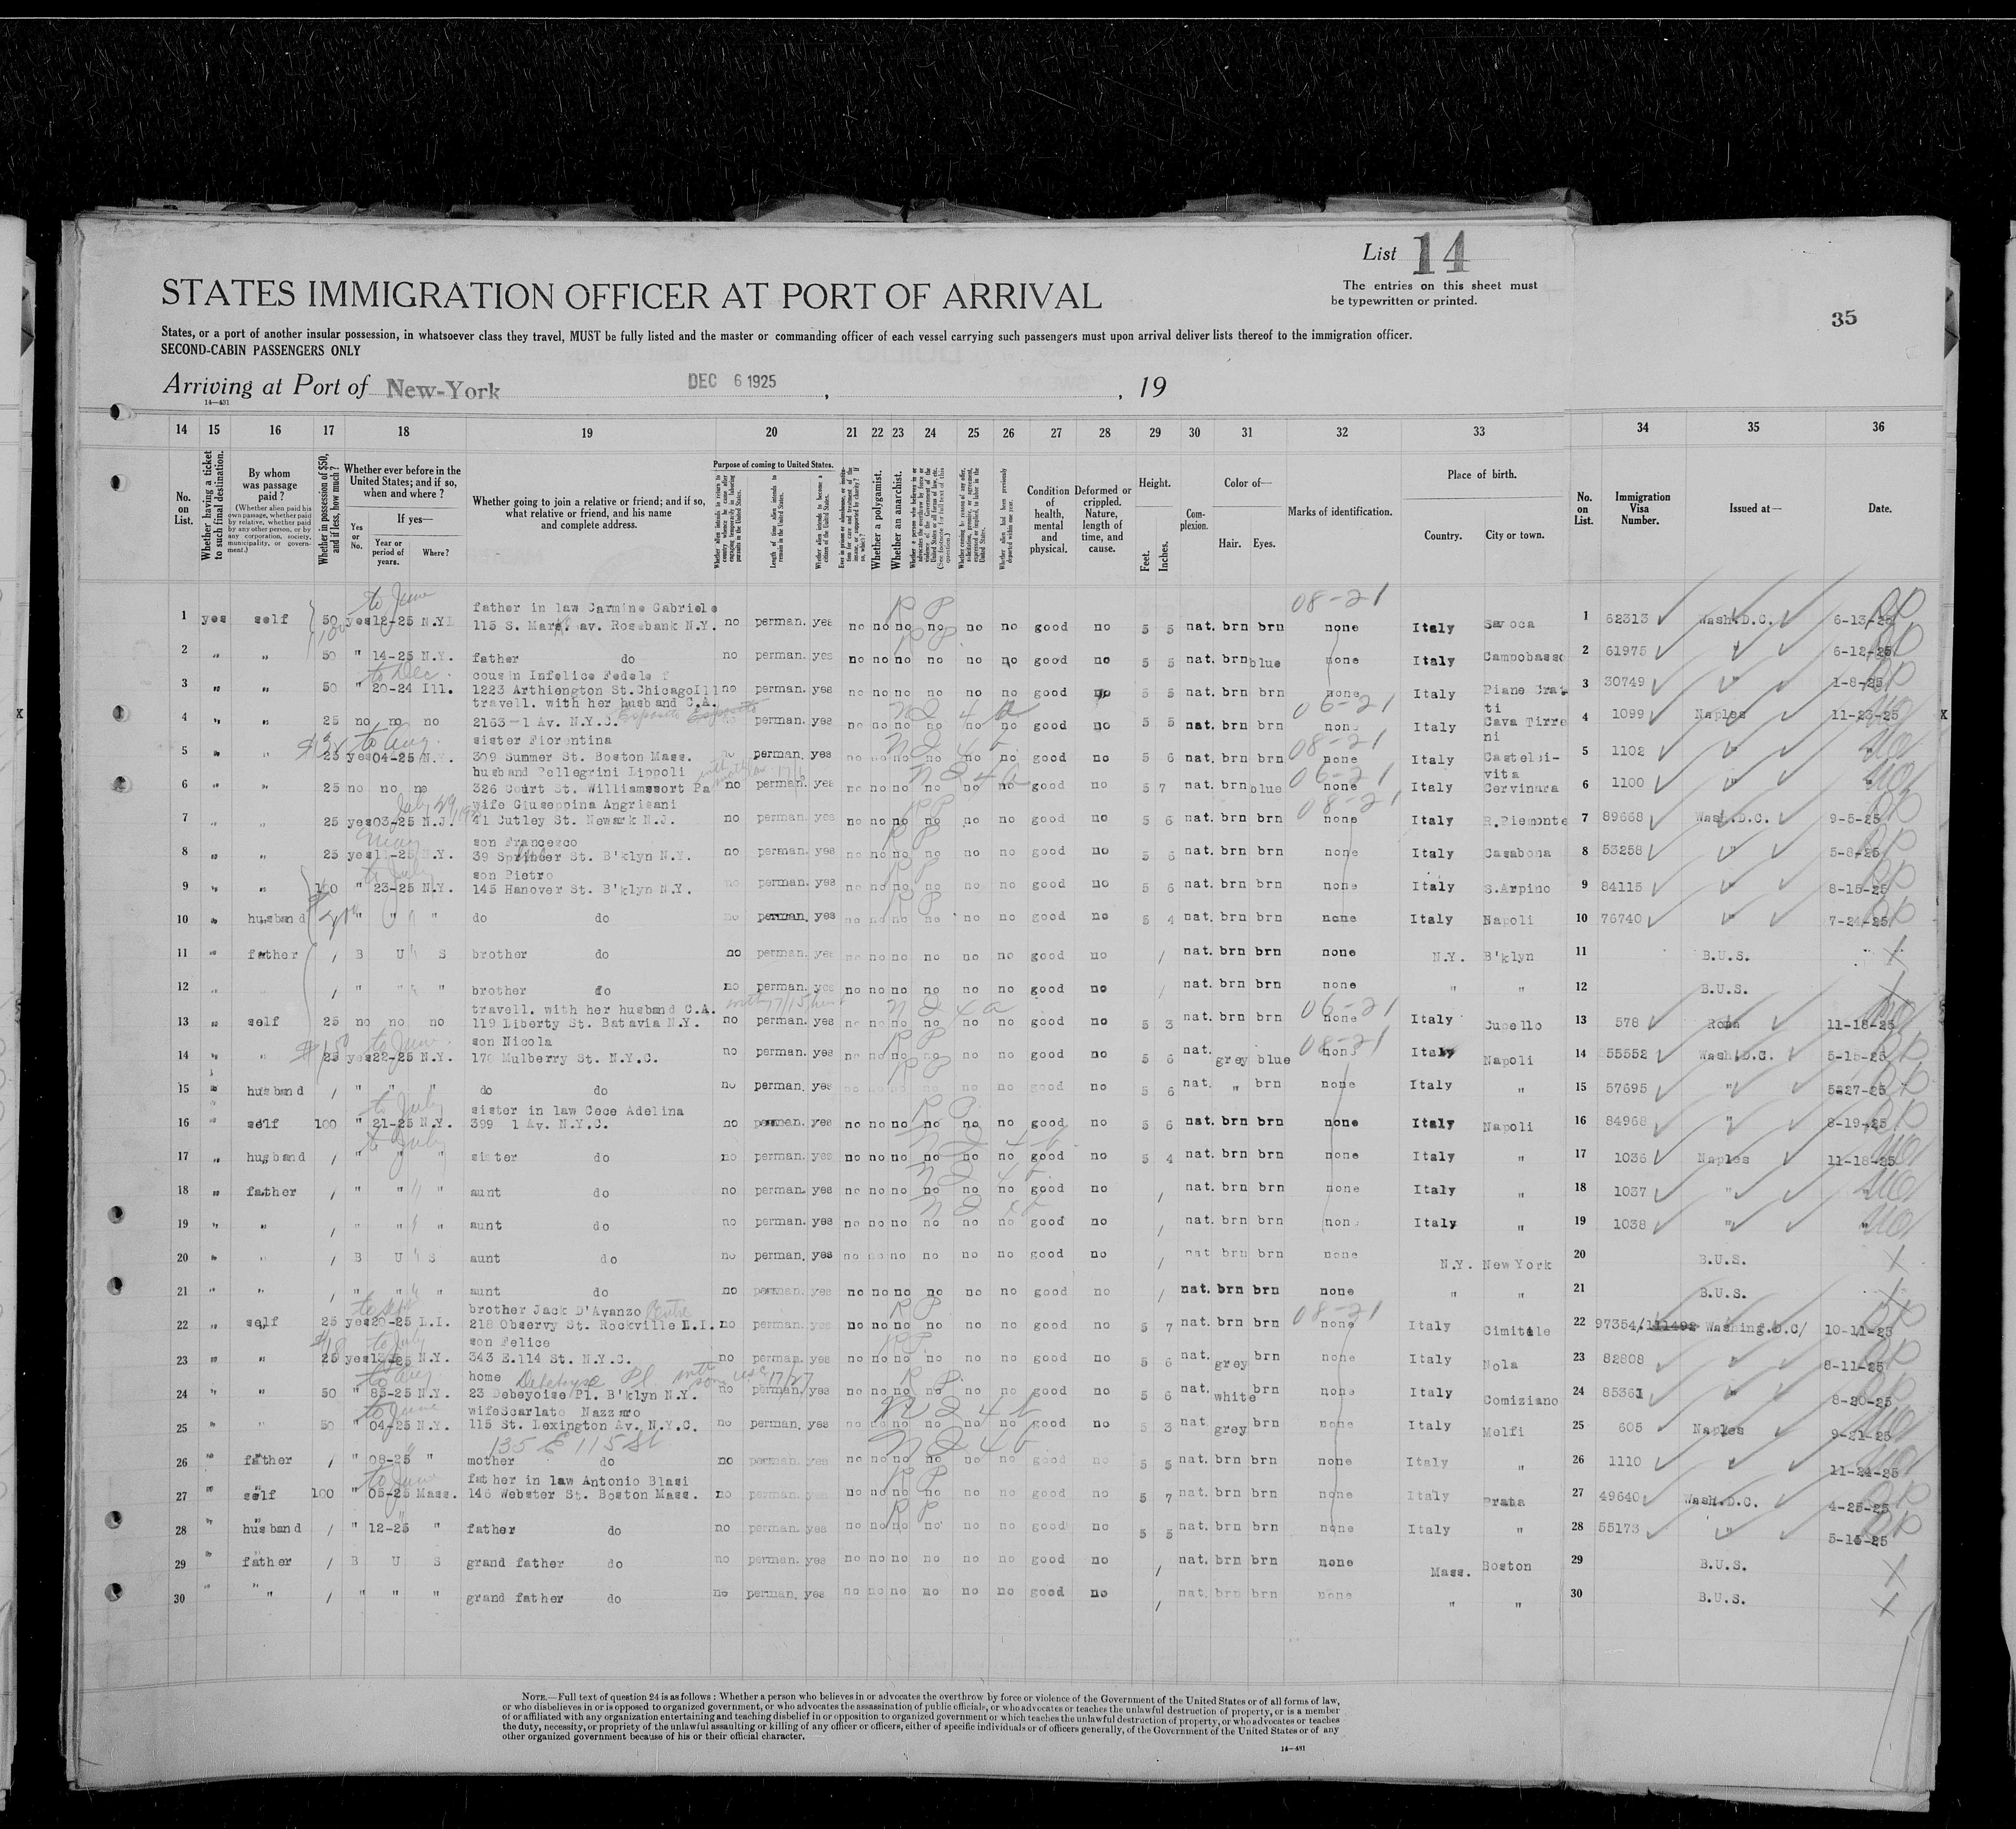 List 14
The entries on this sheet must
be typewritten or printed.
35
STATES IMMIGRATION OFFICER AT PORT OF ARRIVAL
States, or a port of another insular possession, in whatsoever class they travel, MUST be fully listed and the master or commanding officer of each vessel carrying such passengers must upon arrival deliver lists thereof to the immigration officer.
SECOND-CABIN PASSENGERS ONLY
Arriving at Port of New-York DEC 6 1925 , , 19
14—431
14 15 16 17 18 19 20 21 22 23 24 25 26 27 28 29 30 31 32 33 34 35 36
No. on List. Whether having a ticket to such final destination. By whom was passage paid? (Whether alien paid his own passage, whether paid by relative, whether paid by any other person, or by any corporation, society, municipality, or government.) Whether in possession of $50, and if less, how much? Whether ever before in the United States; and if so, when and where? Yes or No. If yes— Year or period of years. Where? Whether going to join a relative or friend; and if so, what relative or friend, and his name and complete address. Purpose of coming to United States. Length of time alien intends to remain in the United States. Whether alien intends to become a citizen of the United States. Whether a polygamist. Whether an anarchist. Condition of health, mental and physical. Deformed or crippled. Nature, length of time, and cause. Height. Feet. Inches. Complexion. Color of— Hair. Eyes. Marks of identification. Place of birth. Country. City or town. No. on List. Immigration Visa Number. Issued at— Date.
to June father in law Carmine Gabriele R P 08-21
1 yes self 50 yes 12-25 N.Y. 115 S. Mars. av. Rosebank N.Y. no perman. yes no no no no no no good no 5 5 nat. brn brn none Italy Savoca 1 62313 Wash.D.C. 6-13-25
2 " " 50 " 14-25 N.Y. father do no perman. yes no no no no no no good no 5 5 nat. brn blue none Italy Campobasso 2 61975 " 6-12-25
to Dec. cousin Infelice Fedele
3 " " 50 " 20-24 Ill. 1223 Arthiengton St.Chicago Ill no perman. yes no no no no no no good no 5 5 nat. brn brn none Italy Piane Crati 3 30749 " 1-8-25
travell. with her husband C.A. 06-21
4 " " 25 no no no 2153-1 Av. N.Y.C. Esposito perman. yes no no no no no no good no 5 5 nat. brn brn none Italy Cava Tirreni 4 1099 Naples 11-23-25
to Aug. sister Fiorentina 08-21
5 " " 25 yes 04-25 N.Y. 309 Summer St. Boston Mass. no perman. yes no no no no no no good no 5 6 nat. brn brn none Italy Castelbi-vita 5 1102 "
husband Pellegrini Lippoli 06-21
6 " " 25 no no no 326 Court St. Williamssort Pa no perman. yes no no no no no no good no 5 7 nat. brn blue none Italy Cervinara 6 1100 "
July wife Giuseppina Angrisani R P 08-21
7 " " 25 yes 03-25 N.J. 41 Cutley St. Newark N.J. no perman. yes no no no no no no good no 5 6 nat. brn brn none Italy R.Piemonte 7 89668 Wash.D.C. 9-5-25
May son Francesco R P
8 " " 25 yes 11-25 N.Y. 39 Springer St. B'klyn N.Y. no perman. yes no no no no no no good no 5 6 nat. brn brn none Italy Casabona 8 53258 " 5-8-25
to July son Pietro R P
9 " " 100 " 23-25 N.Y. 145 Hanover St. B'klyn N.Y. no perman. yes no no no no no no good no 5 6 nat. brn brn none Italy S.Arpino 9 84115 " 8-15-25
10 " husband " " " do do no perman. yes no no no no no no good no 5 4 nat. brn brn none Italy Napoli 10 76740 " 7-24-25
11 " father / B U S brother do no perman. yes no no no no no no good no / nat. brn brn none N.Y. B'klyn 11 B.U.S.
12 / " " " brother do no perman. yes no no no no no no good no / nat. brn brn none " " 12 B.U.S.
travell. with her husband C.A. 06-21
13 " self 25 no no no 119 Liberty St. Batavia N.Y. no perman. yes no no no no no no good no 5 3 nat. brn brn none Italy Cupello 13 578 Roma 11-18-25
$150 to June son Nicola R P 08-21
14 " " 25 yes 22-25 N.Y. 170 Mulberry St. N.Y.C. no perman. yes no no no no no no good no 5 6 nat. grey blue none Italy Napoli 14 55552 Wash.D.C. 5-15-25
15 " husband / " " " do do no perman. yes no no no no no no good no 5 6 nat. " brn none Italy " 15 57695 " 5-27-25
to July sister in law Cece Adelina R P
16 " self 100 " 21-25 N.Y. 399 1 Av. N.Y.C. no perman. yes no no no no no no good no 5 6 nat. brn brn none Italy Napoli 16 84968 " 8-19-25
to July
17 " husband / " " " sister do no perman. yes no no no no no no good no 5 4 nat. brn brn none Italy " 17 1036 Naples 11-18-25
18 " father / " " " aunt do no perman. yes no no no no no no good no / nat. brn brn none Italy " 18 1037 " "
19 " " / " " " aunt do no perman. yes no no no no no no good no / nat. brn brn none Italy " 19 1038 " "
20 " " / B U S aunt do no perman. yes no no no no no no good no / nat brn brn none N.Y. New York 20 B.U.S.
21 " " / " " " aunt do no perman. yes no no no no no no good no / nat. brn brn none " " 21 B.U.S.
to Sept brother Jack D'Avanzo Centre R P 08-21
22 " self 25 yes 20-25 L.I. 218 Observy St. Rockville L.I. no perman. yes no no no no no no good no 5 7 nat. brn brn none Italy Cimitile 22 97354/111492 Washing.D.C/ 10-11-25
to July son Felice R P
23 " " 25 yes 13-25 N.Y. 343 E.114 St. N.Y.C. no perman. yes no no no no no no good no 5 6 nat. grey brn none Italy Nola 23 82808 " 8-11-25
home R P
24 " " 50 " 85-25 N.Y. 23 Debeyoise Pl. B'klyn N.Y. no perman. yes no no no no no no good no 5 6 nat. white brn none Italy Comiziano 24 85361 " 8-20-25
to June wife Scarlato Nazzaro
25 " " 50 " 04-25 N.Y. 115 St. Lexington Av. N.Y.C. no perman. yes no no no no no no good no 5 3 nat grey brn none Italy Melfi 25 605 Naples 9-21-25
135 E 115 St
26 " father / " 08-25 " mother do no perman. yes no no no no no no good no 5 5 nat. brn brn none Italy " 26 1110 " 11-24-25
to June father in law Antonio Blasi R P
27 " self 100 " 05-25 Mass. 146 Webster St. Boston Mass. no perman. yes no no no no no no good no 5 7 nat. brn brn none Italy Prata 27 49640 Wash.D.C. 4-25-25
28 " husband / " 12-25 " father do no perman. yes no no no no no no good no 5 5 nat. brn brn none Italy " 28 55173 " 5-15-25
29 " father / B U S grand father do no perman. yes no no no no no no good no / nat. brn brn none Mass. Boston 29 B.U.S.
30 " " / " " " grand father do no perman. yes no no no no no no good no / nat. brn brn none " " 30 B.U.S.
NOTE.—Full text of question 24 is as follows: Whether a person who believes in or advocates the overthrow by force or violence of the Government of the United States or of all forms of law,
or who disbelieves in or is opposed to organized government, or who advocates the assassination of public officials, or who advocates or teaches the unlawful destruction of property, or is a member
of or affiliated with any organization entertaining and teaching disbelief in or opposition to organized government or which teaches the unlawful destruction of property, or who advocates or teaches
the duty, necessity, or propriety of the unlawful assaulting or killing of any officer or officers, either of specific individuals or of officers generally, of the Government of the United States or of any
other organized government because of his or their official character.
14—431